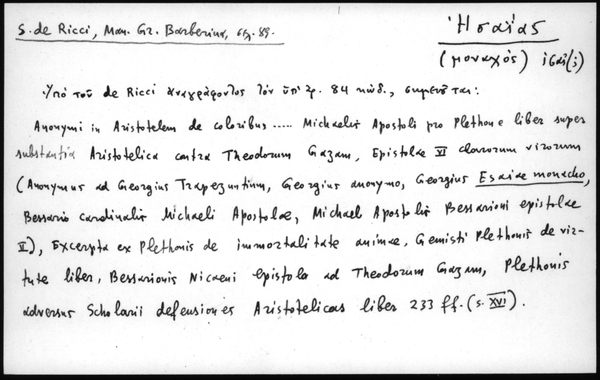 S. de Ricci, Man. Gr. Barberina, σελ. 89.
Ἡσαΐας
(μοναχός) ἰσαΐ(;)
Ὑπό τοῦ de Ricci ἀναγράφοντος τόν ὑπ' ἀρ. 84 κώδ., σημειοῦται:
Anonymi in Aristotelem de coloribus ..... Michaelis Apostoli pro Plethone liber super
substantia Aristotelica contra Theodorum Gazam, Epistolae XI clarorum virorum
(Anonymus ad Georgius Trapezuntium, Georgius anonymo, Georgius Esaiae monacho,
Bessario cardinalis Michaeli Apostolae, Michael Apostolis Bessarioni epistolae
II), Excerpta ex Plethonis de immortalitate animae, Gemisti Plethonis de vir-
tute liber, Bessarionis Nicaeni epistola ad Theodorum Gazam, Plethonis
adversus Scholarii defensiones Aristotelicas liber 233 ff. (s. XVI).